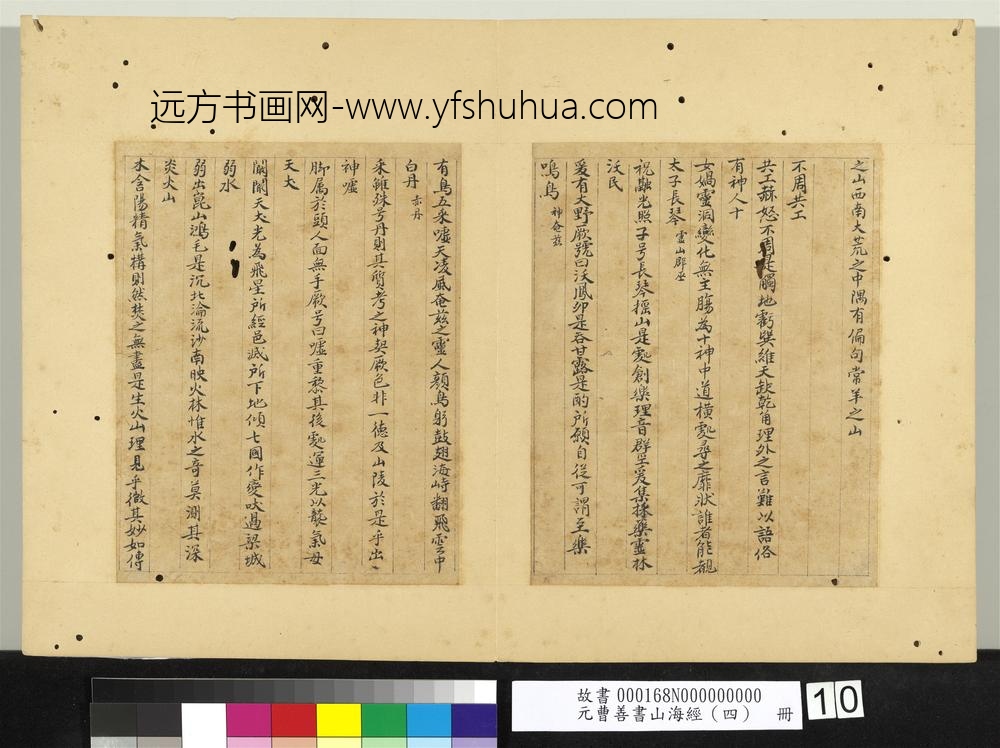 远方书画网-www.yfshuhua.com
之山西南大荒之中隅有偏句常羊之山
不周共工
共工赫怒不周是觸地虧巽維天缺乾角理外之言難以語俗
有神人十
女媧靈洞變化無主膓為十神中道橫處尋之靡狀誰者能覩
太子長琴 靈山郡巫
祝融光照子号長琴搖山是處創樂理音群巫爰集採藥靈林
沃民
爰有大野厥號曰沃鳳卵是吞甘露是酌所願自從可謂至樂
鳴鳥 神奄茲
有鳥五采噓天凌風奄茲之靈人顏鳥躬鼓翅海峙翻飛雲中
白丹 赤丹
采雖殊号丹則其質考之神契厥色非一德及山陵於是乎出
神噓
脚属於頭人面無手厥号曰噓重黎其後處運三光以襲氣母
天犬
闞闞天犬光為飛星所經邑滅所下地傾七國作變吠過梁城
弱水
弱出崑山鴻毛是沉北淪流沙南映火林惟水之奇莫測其深
炎火山
木含陽精氣構則然焚之無盡是生火山理見乎微其妙如傳
故書 000168N000000000
元曹善書山海經（四） 冊
10